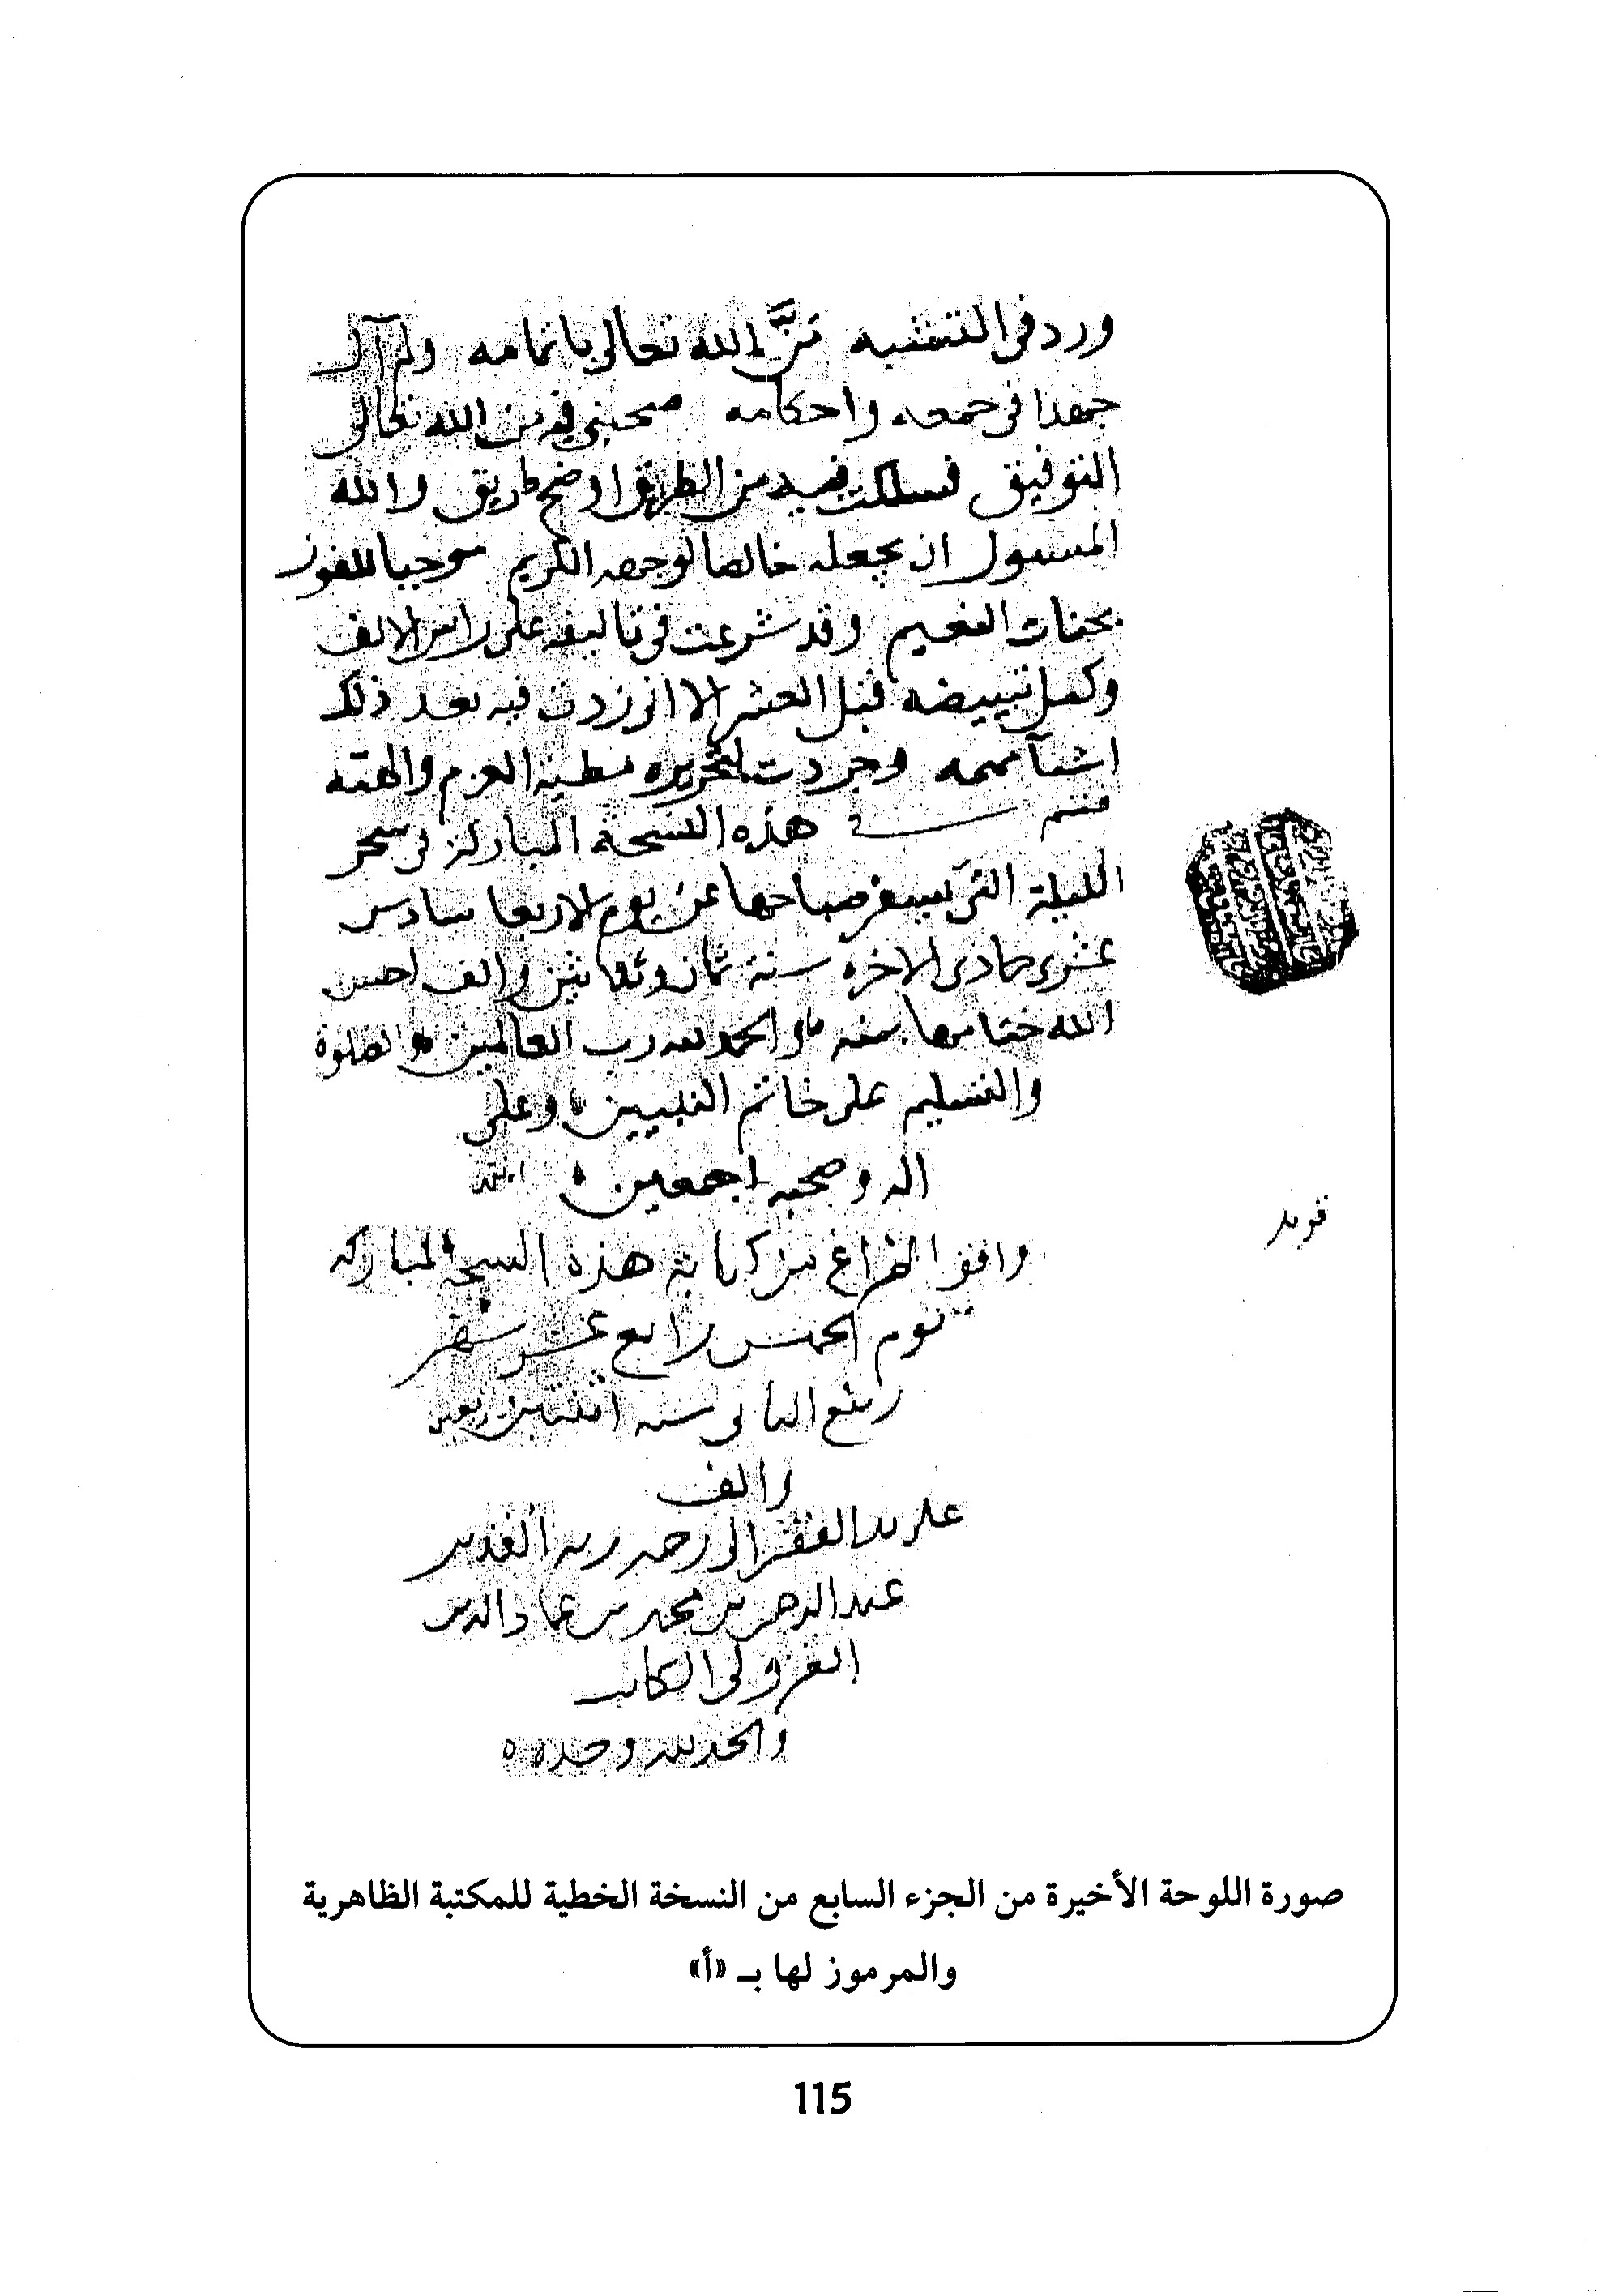 ورد في التشبيه منَّ الله تعالى باتمامه ولم آل
جهدا في جمعه واحكامه صحبني فيه من الله تعالى
التوفيق فسلكت فيه من الطريق اوضح طريق والله
المسول ان يجعله خالصا لوجهه الكريم موجبا للفوز
بجنات النعيم وقد شرعت في تاليفه على راس الالف
وكمل تبييضه قبل العشر الا اني زدت فيه بعد ذلك
اشيآ مهمه وجردت لتحريره مطية العزم والهمة
هذه النسخة المباركة في سحر
الليلة التي يسفر صباحها عن يوم الاربعا سادس
عشري جمادى الاخره سنة ثمان وثلاثين والف احسن
الله ختامها بمنه والحمد لله رب العالمين والصلوة
والتسليم على خاتم النبيين وعلى
اله وصحبه اجمعين
وافق الفراغ من كتابة هذه النسخة المباركه
يوم الخميس رابع عشر شهر
ربيع الثاني سنه اثنتين واربعين
والف
على يد الفقير الى رحمة ربه القدير
عبد الرحمن بن محمد بن عماد الدين
الغزولي الكاتب
والحمد لله وحده
قوبل
صورة اللوحة الأخيرة من الجزء السابع من النسخة الخطية للمكتبة الظاهرية
والمرموز لها بـ «أ»
115